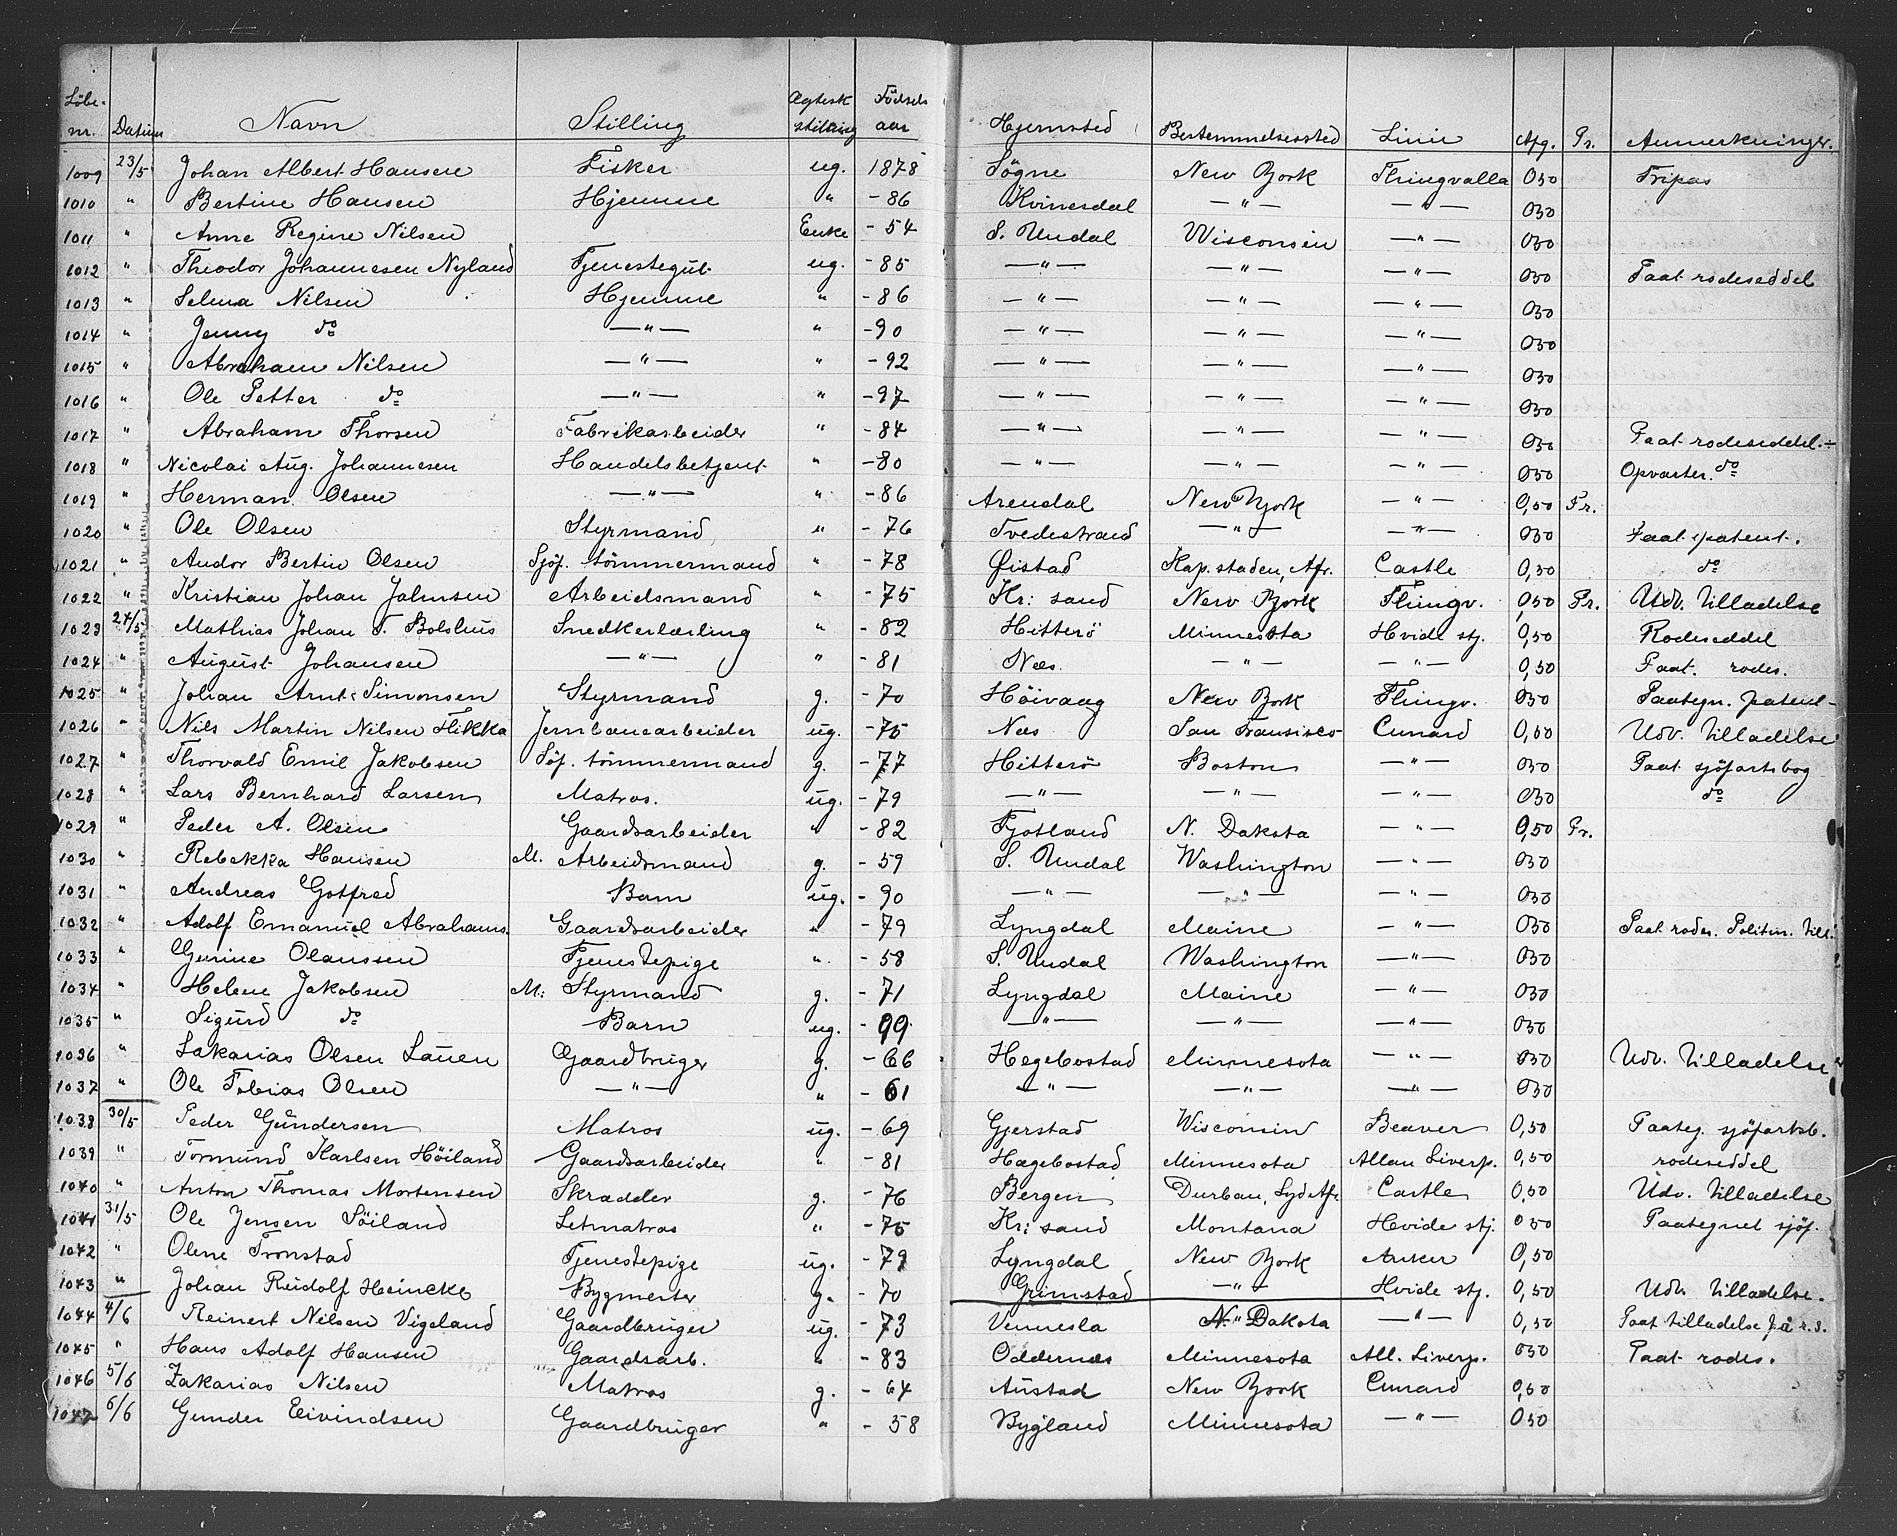 Löbe- nr. Datum Navn Stilling Ægtesk stilling Födsels aar Hjemsted Bestemmelsessted Linie Afg. Pr. Anmerkninger.
1009 23/5 Johan Albert Hansen Fisker ug. 1878 Søgne New York Thingvalla 050 Fripas
1010 " Bertine Hansen Hjemme " -86 Kvinesdal —"— —"— 050
1011 " Anne Regine Nilsen Enke -54 S. Undal Wisconsin —"— 050
1012 " Theodor Johannesen Nyland Tjenestegut ug. -85 —"— —"— —"— 050 Paat rodeseddel
1013 " Selma Nilsen Hjemme " -86 —"— —"— —"— 050
1014 " Jenny do —"— " -90 —"— —"— —"— 050
1015 " Abraham Nilsen —"— " -92 —"— —"— —"— 050
1016 " Ole Petter do —"— " -97 —"— —"— —"— 050
1017 " Abraham Thorsen Fabrikarbeider " -84 —"— —"— —"— 050 Paat rodeseddel.-
1018 " Nicolai Aug. Johannesen Handelsbetjent " -80 —"— —"— —"— 050 Opvarter. do
1019 " Herman Olsen —"— " -86 Arendal New York —"— 0,50 Fr.
1020 " Ole Olsen Styrmand " -76 Tvedestrand —"— —"— 050 Paat. patent.
1021 " Andor Bertin Olsen Sjöf. tömmermand " -78 Øistad Kap.staden, Afr. Castle 0,50 do
1022 " Kristian Johan Johnsen Arbeidsmand " -75 Kr: sand New York Thingv. 0,50 Pr. Udv. tilladelse
1023 24/5 Mathias Johan T. Bolshus Snedkerlærling " -82 Hitterö Minnesota Hvide stj. 0,50 Rodeseddel
1024 " August Johansen —"— " -81 Næs. —"— —"— 0,50 Paat. rodes.
1025 " Johan Arnt Simonsen Styrmand g. -70 Höivaag New York Thingv. 050 Paategn. patent-
1026 " Nils Martin Nilsen Flikka Jernbanearbeider ug. -75 Næs San Fransisco Cunard 0,50 Udv. tilladelse
1027 " Thorvald Emil Jakobsen Söf. tömmermand g. -77 Hitterö Boston —"— 050 Paat sjöfartsbog
1028 " Lars Bernhard Larsen Matros. ug. -79 —"— —"— —"— 050 do
1029 " Peder A. Olsen Gaardsarbeider " -82 Fjotland N. Dakota —"— 0,50 Pr.
1030 " Rebekka Hansen M. Arbeidsmand g. -59 S. Undal Washington —"— 050
1031 " Andreas Gotfred Barn ug. -90 —"— —"— —"— 050
1032 " Adolf Emanuel Abrahams. Gaardsarbeider " -79 Lyngdal Maine —"— 050 Paat rodes. Politm. till.
1033 " Gurine Olaussen Tjenestepige " -58 S. Undal Washington —"— 050
1034 " Helene Jakobsen M: Styrmand g. -71 Lyngdal Maine —"— 050
1035 " Sigurd do Barn ug. -99 —"— —"— —"— 050
1036 " Sakarias Olsen Lauen Gaardbruger g. -66 Hegebostad Minnesota —"— 050 Udv. tilladelse
1037 " Ole Tobias Olsen —"— " -61 —"— —"— —"— 050
1038 30/5 Peder Gundersen Matros ug. -69 Gjerstad Wisconsin Beaver 0,50 Paateg. sjöfartsb.
1039 " Tormund Karlsen Höiland Gaardsarbeider " -81 Hægebostad Minnesota Allan Liverp. 0,50 rodeseddel
1040 " Anton Thomas Mortensen Skrædder g. -76 Bergen Durban, Syd Afr. Castle 0,50 Udv. tilladelse
1041 31/5 Ole Jensen Söiland Letmatros " -75 Kr: sand Montana Hvide stj. 050 Paategnet sjöf.
1042 " Olene Tronstad Tjenestepige ug. -79 Lyngdal New York Anker 0,50
1043 " Johan Rudolf Heincke Bygmester g. -70 Grimstad —"— Hvide stj. 0,50 Udv. tilladelse.
1044 4/6 Reinert Nilsen Vigeland Gaardbruger ug. -73 Vennesla N. Dakota —"— 0,50 Paat tilladelse på r.s.
1045 " Hans Adolf Hansen Gaardsarb. " -83 Oddernæs Minnesota All. Liverp. 050 Paat rodes.
1046 5/6 Zakarias Nilsen Matros g. -64 Austad New York Cunard 0,50
1047 6/6 Gunder Eivindsen Gaardbruger " -58 Bygland Minnesota —"— 050